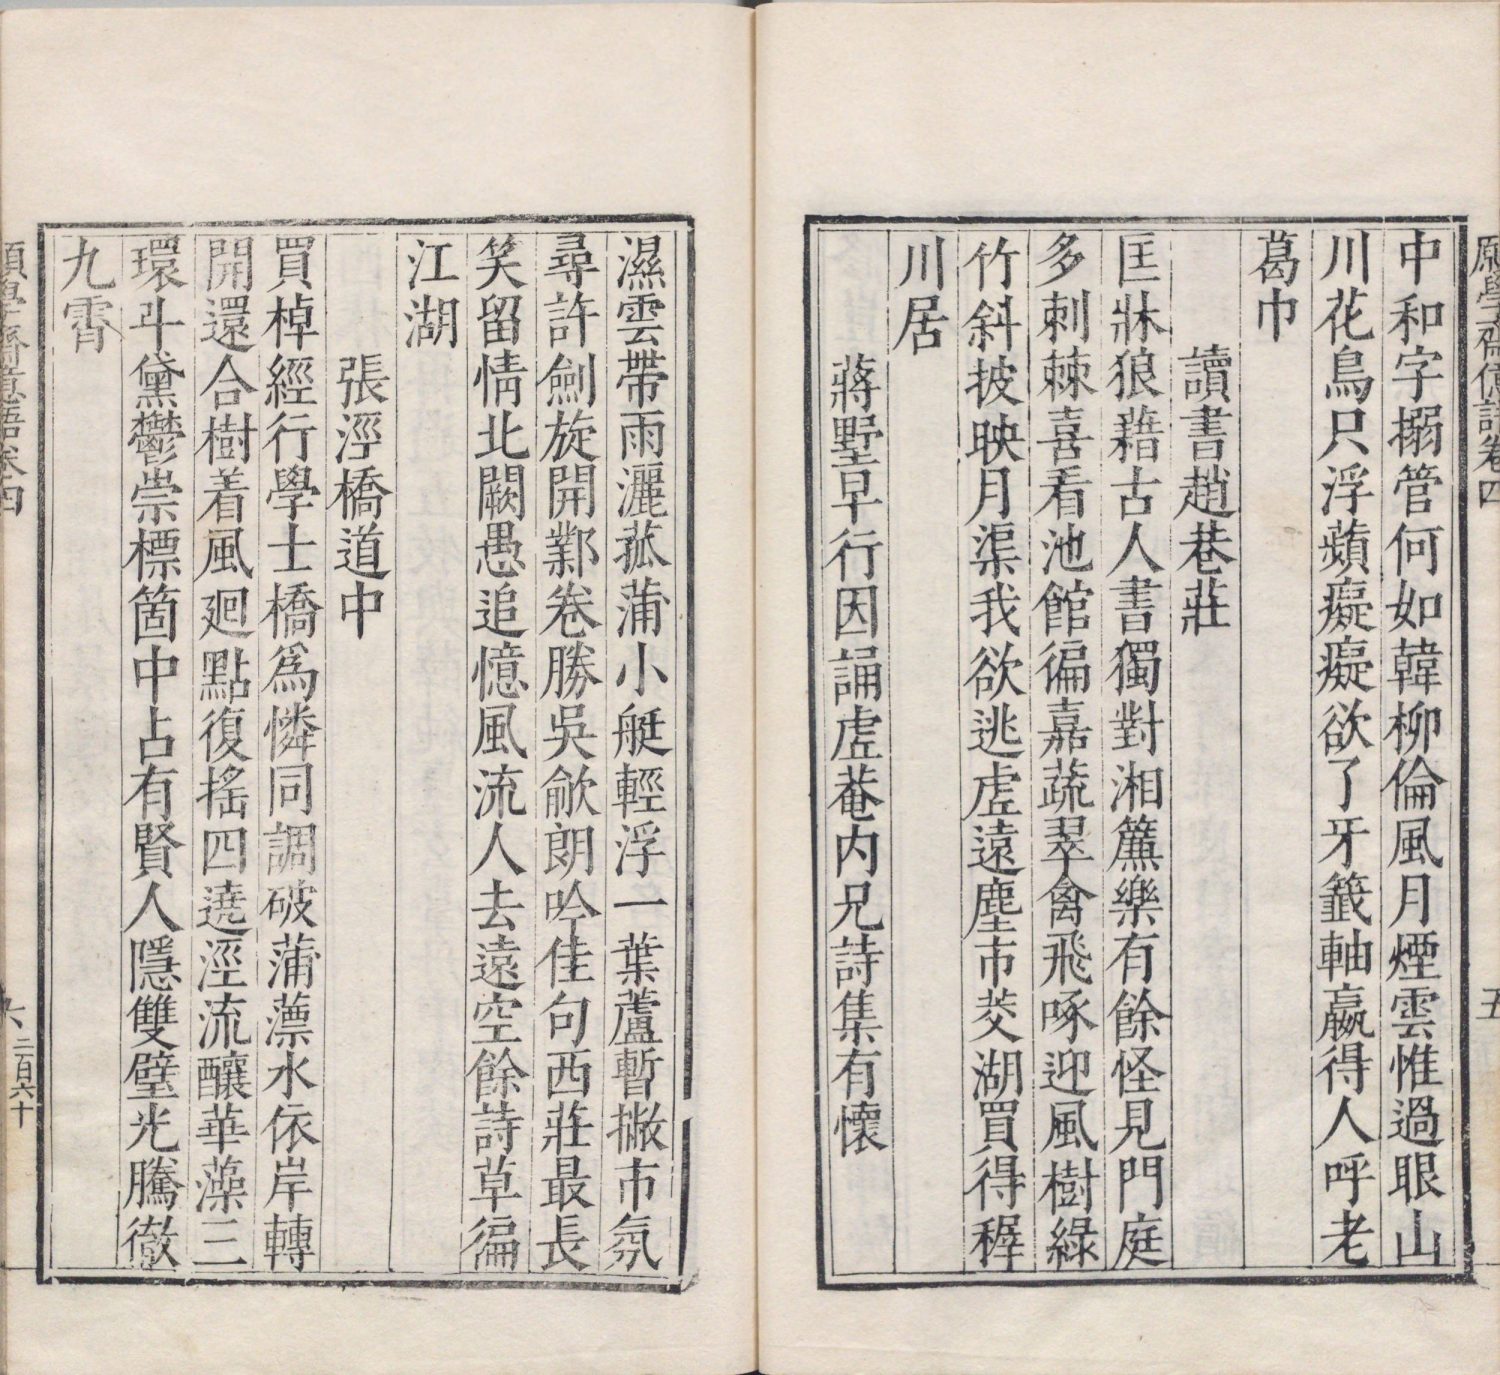 願學齋億語卷四
五
中和字搦管何如韓柳倫風月煙雲惟過眼山
川花鳥只浮蘋癡癡欲了牙籤軸嬴得人呼老
葛巾
讀書趙巷莊
匡牀狼藉古人書獨對湘簾樂有餘怪見門庭
多刺棘喜看池館徧嘉蔬翠禽飛啄迎風樹綠
竹斜披映月渠我欲逃虛遠塵市茭湖買得穉
川居
蔣墅早行因誦虛菴内兄詩集有懷
濕雲帶雨灑菰蒲小艇輕浮一葉蘆暫撇市氛
尋許劍旋開鄴卷勝吳歈朗吟佳句西莊最長
笑留情北闕愚追憶風流人去遠空餘詩草徧
江湖
張涇橋道中
買棹經行學士橋爲憐同調破蒲薸水依岸轉
開還合樹着風廻點復搖四遶涇流釀華藻三
環斗黛鬱崇標箇中占有賢人隱雙璧光騰徹
九霄
願學齋億語卷四
六
二百六十